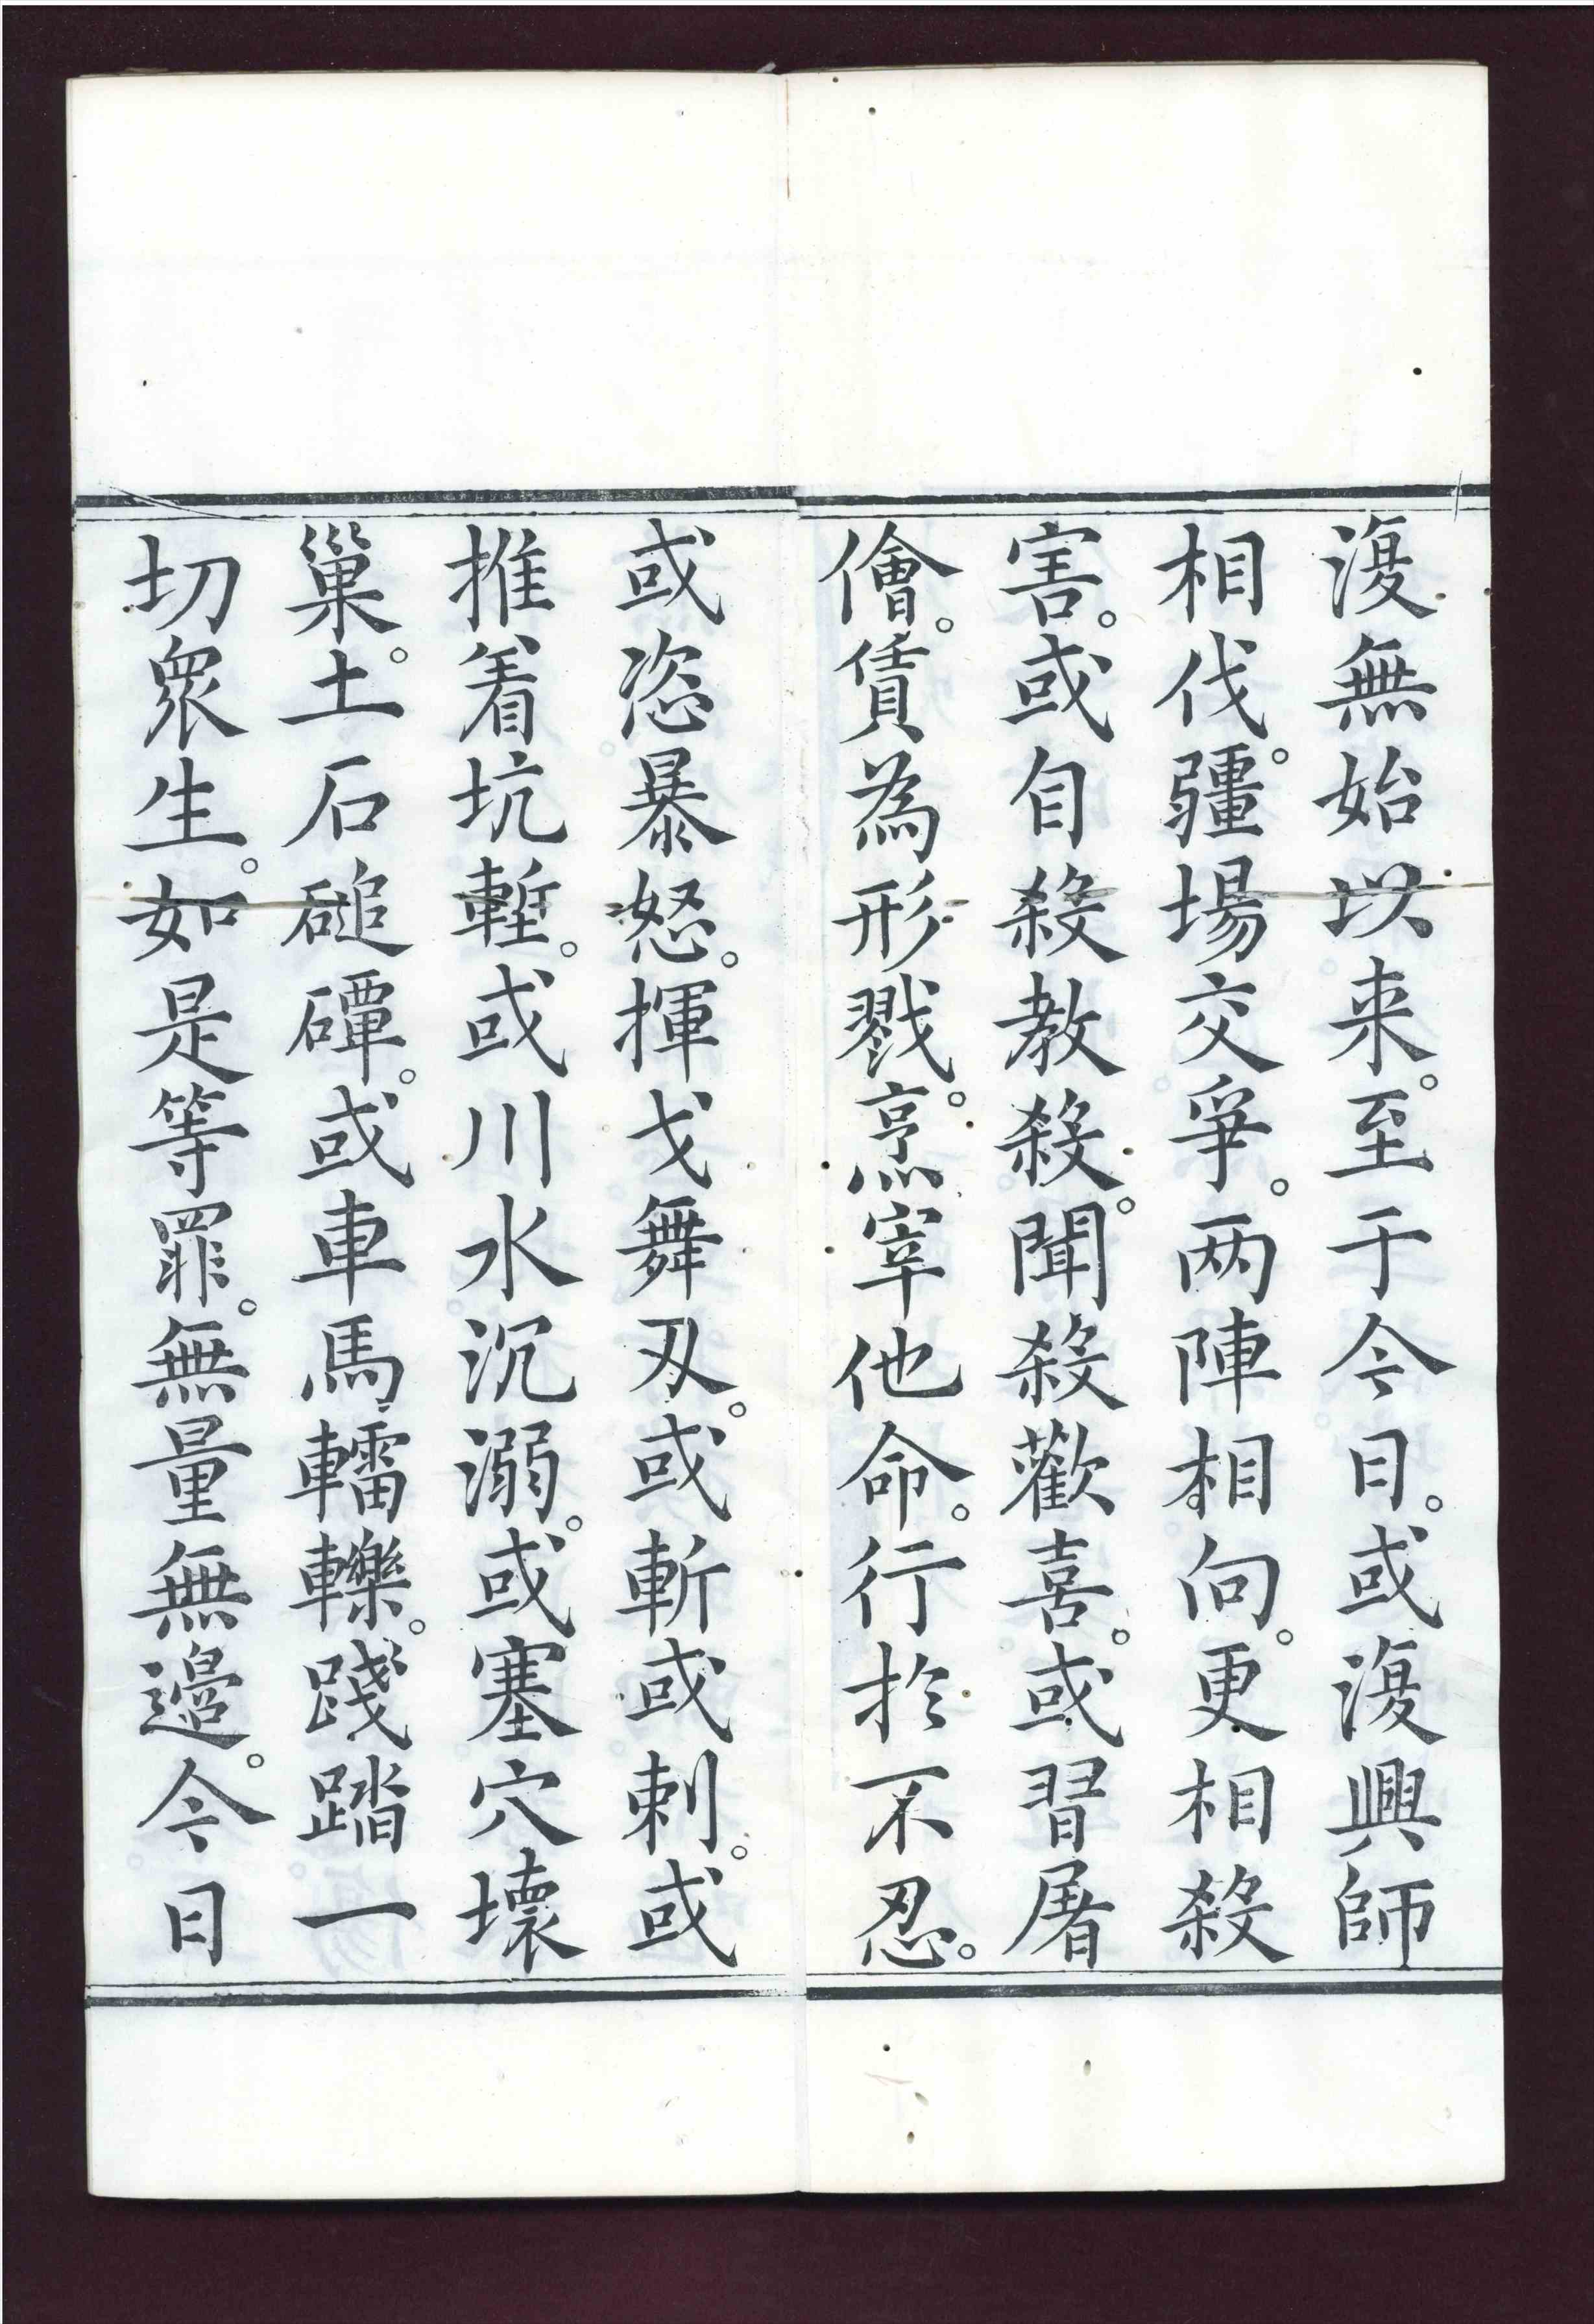 復無始以来。至于今日。或復興師
相伐。疆場交爭。两陣相向。更相殺
害。或自殺教殺。聞殺歡喜。或習屠
儈。賃為形戮。烹宰他命。行於不忍。
或恣暴怒。揮戈舞刄。或斬或刺。或
推着坑塹。或川水沉溺。或塞穴壞
巢。土石磓磹。或車馬轠轢。踐踏一
切衆生。如是等罪。無量無邊。今日